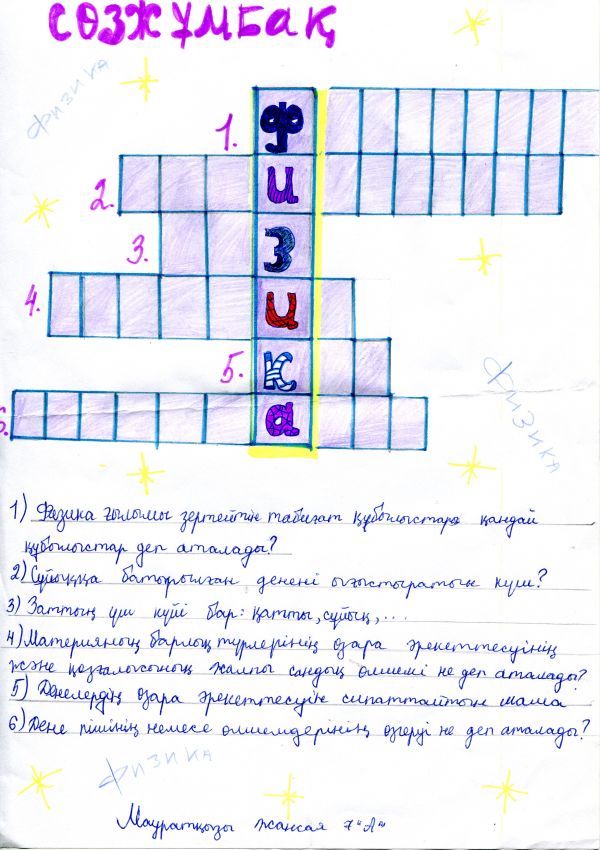 СӨЗЖҰМБАҚ
Физика
1. Ф
2. и
3. З
4. и
5. к
6. а
Физика
1) Физика ғылымы зерттейтін табиғат құбылыстары қандай
құбылыстар деп аталады?
2) Сұйыққа батырылған денені ығыстыратын күш?
3) Заттың үш күйі бар: қатты, сұйық, ...
4) Материяның барлық түрлерінің өзара әрекеттесуінің
және қозғалысының жалпы сандық өлшемі не деп аталады?
5) Денелердің өзара әрекеттесуін сипаттайтын шама
6) Дене пішінің немесе өлшемдерінің өзгеруі не деп аталады?
Физика
Мауратқызы Жансая 7 "А"